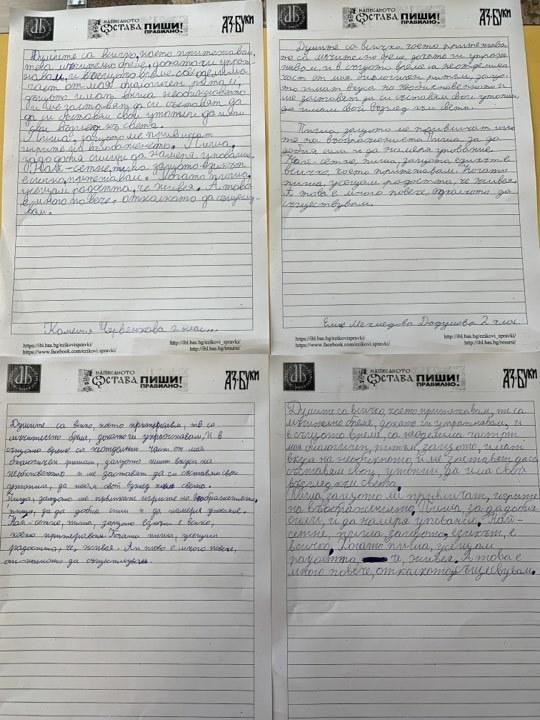 НАПИСАНОТО ОСТАВА ПИШИ! ПРАВИЛНО.
АЗ-БУКИ
Думите са всичко, което притежавам,
това мъчително време, докато ги упраж-
нявам, и в същото време са неделима
част от моя биологичен ритъм,
защото имат вкуса на необикновеното
и ме заставят да си съставям
свои утопии, да имам
свой възглед за света.
Пиша, защото ме привличат
игрите на въображението. Пиша,
за да добия сили и да намеря упование.
Най-сетне, пиша, защото езикът
е всичко, което притежавам. Когато пиша,
усещам радостта, че живея. А това
е много повече, отколкото да съществу-
вам.
Камелия Червенкова 2 клас
https://ibl.bas.bg/ezikovispravki/
https://www.facebook.com/ezikovi_spravki/
http://ibl.bas.bg/ezikovi_spravki/
http://ibl.bas.bg/besura/
НАПИСАНОТО ОСТАВА ПИШИ! ПРАВИЛНО.
АЗ-БУКИ
Думите са всичко, което притежава
те са мъчително време, докато ги упраж
нявам, и в същото време са неделима
част от моя биологичен ритъм, защо
то имат вкуса на необикновеното и
ме заставят да си съставям свои утопии
да имам свой възглед към света.
Пиша, защото ме привличат игри
те на въображението. Пиша за да
добия сили и да намеря упование.
Най-сетне, пиша, защото езикът е
всичко, което притежавам. Когато
пиша, усещам радостта, че живея.
А това е много повече, отколкото да
съществувам.
Дадушева 2 клас
https://ibl.bas.bg/ezikovispravki/
https://www.facebook.com/ezikovi_spravki/
http://ibl.bas.bg/ezikovi_spravki/
http://ibl.bas.bg/besura/
НАПИСАНОТО ОСТАВА ПИШИ! ПРАВИЛНО.
АЗ-БУКИ
Думите са всичко, което притежавам, те са
мъчително време, докато ги упражнявам, и в
същото време са неделима част от моя
биологичен ритъм, защото имат вкуса на
необикновеното и ме заставят да си съставям свои
утопии, да имам свой възглед към света.
Пиша, защото ме привличат игрите на въображението,
пиша, за да добия сили и да намеря упование.
Най-сетне, пиша, защото езикът е всичко,
което притежавам. Когато пиша, усещам
радостта, че живея. А това е много повече,
отколкото да съществувам.
НАПИСАНОТО ОСТАВА ПИШИ! ПРАВИЛНО.
АЗ-БУКИ
Думите са всичко, което притежавам, те са
мъчително време, докато ги упражнявам, и
в същото време, са неделима част от
моя биологичен, ритъм, защото, имат
вкуса на необикновеното и ме заставят да си
съставям свои, утопии, да имам свой
възглед към света.
Пиша, защото ме привличат, игрите
на въображението. Пиша, за да добия
сили, и да намеря упование. Най-
сетне, пиша, защото, езикът, е
всичко. Когато пиша, усещам
радостта, че, живея. А това е
много повече, отколкото съществувам.